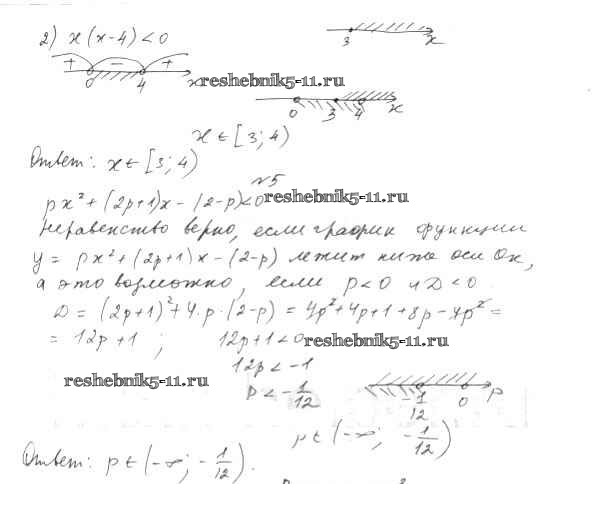 2) x(x-4)<0
3 x
+ - +
0 4 x reshebnik5-11.ru
0 3 4 x
x ∈ [3; 4)
Ответ: x ∈ [3; 4)
№5
px² + (2p+1)x - (2-p)<0 reshebnik5-11.ru
Неравенство верно, если график функции
y = px² + (2p+1)x - (2-p) лежит ниже оси Ox,
а это возможно, если p<0 и D<0.
D = (2p+1)² + 4·p·(2-p) = 4p²+4p+1+8p-4p² =
= 12p+1; 12p+1<0 reshebnik5-11.ru
12p < -1
reshebnik5-11.ru p < -1/12
-1/12 0 p
p ∈ (-∞; -1/12)
Ответ: p ∈ (-∞; -1/12).